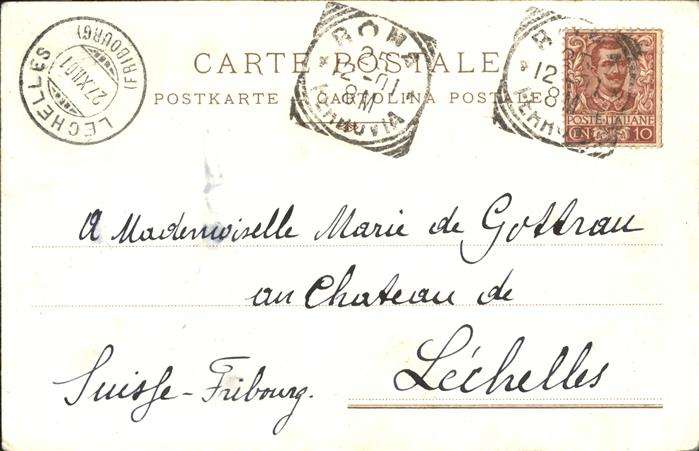 LÉCHELLES
(FRIBOURG)
27.XII.01
ROMA
12-01
8M
FERROVIA
12
8
CARTE POSTALE
POSTKARTE CARTOLINA POSTALE
POSTE ITALIANE
CENT 10
A Mademoiselle Marie de Gottrau
au Chateau de
Léchelles
Suisse-Fribourg.